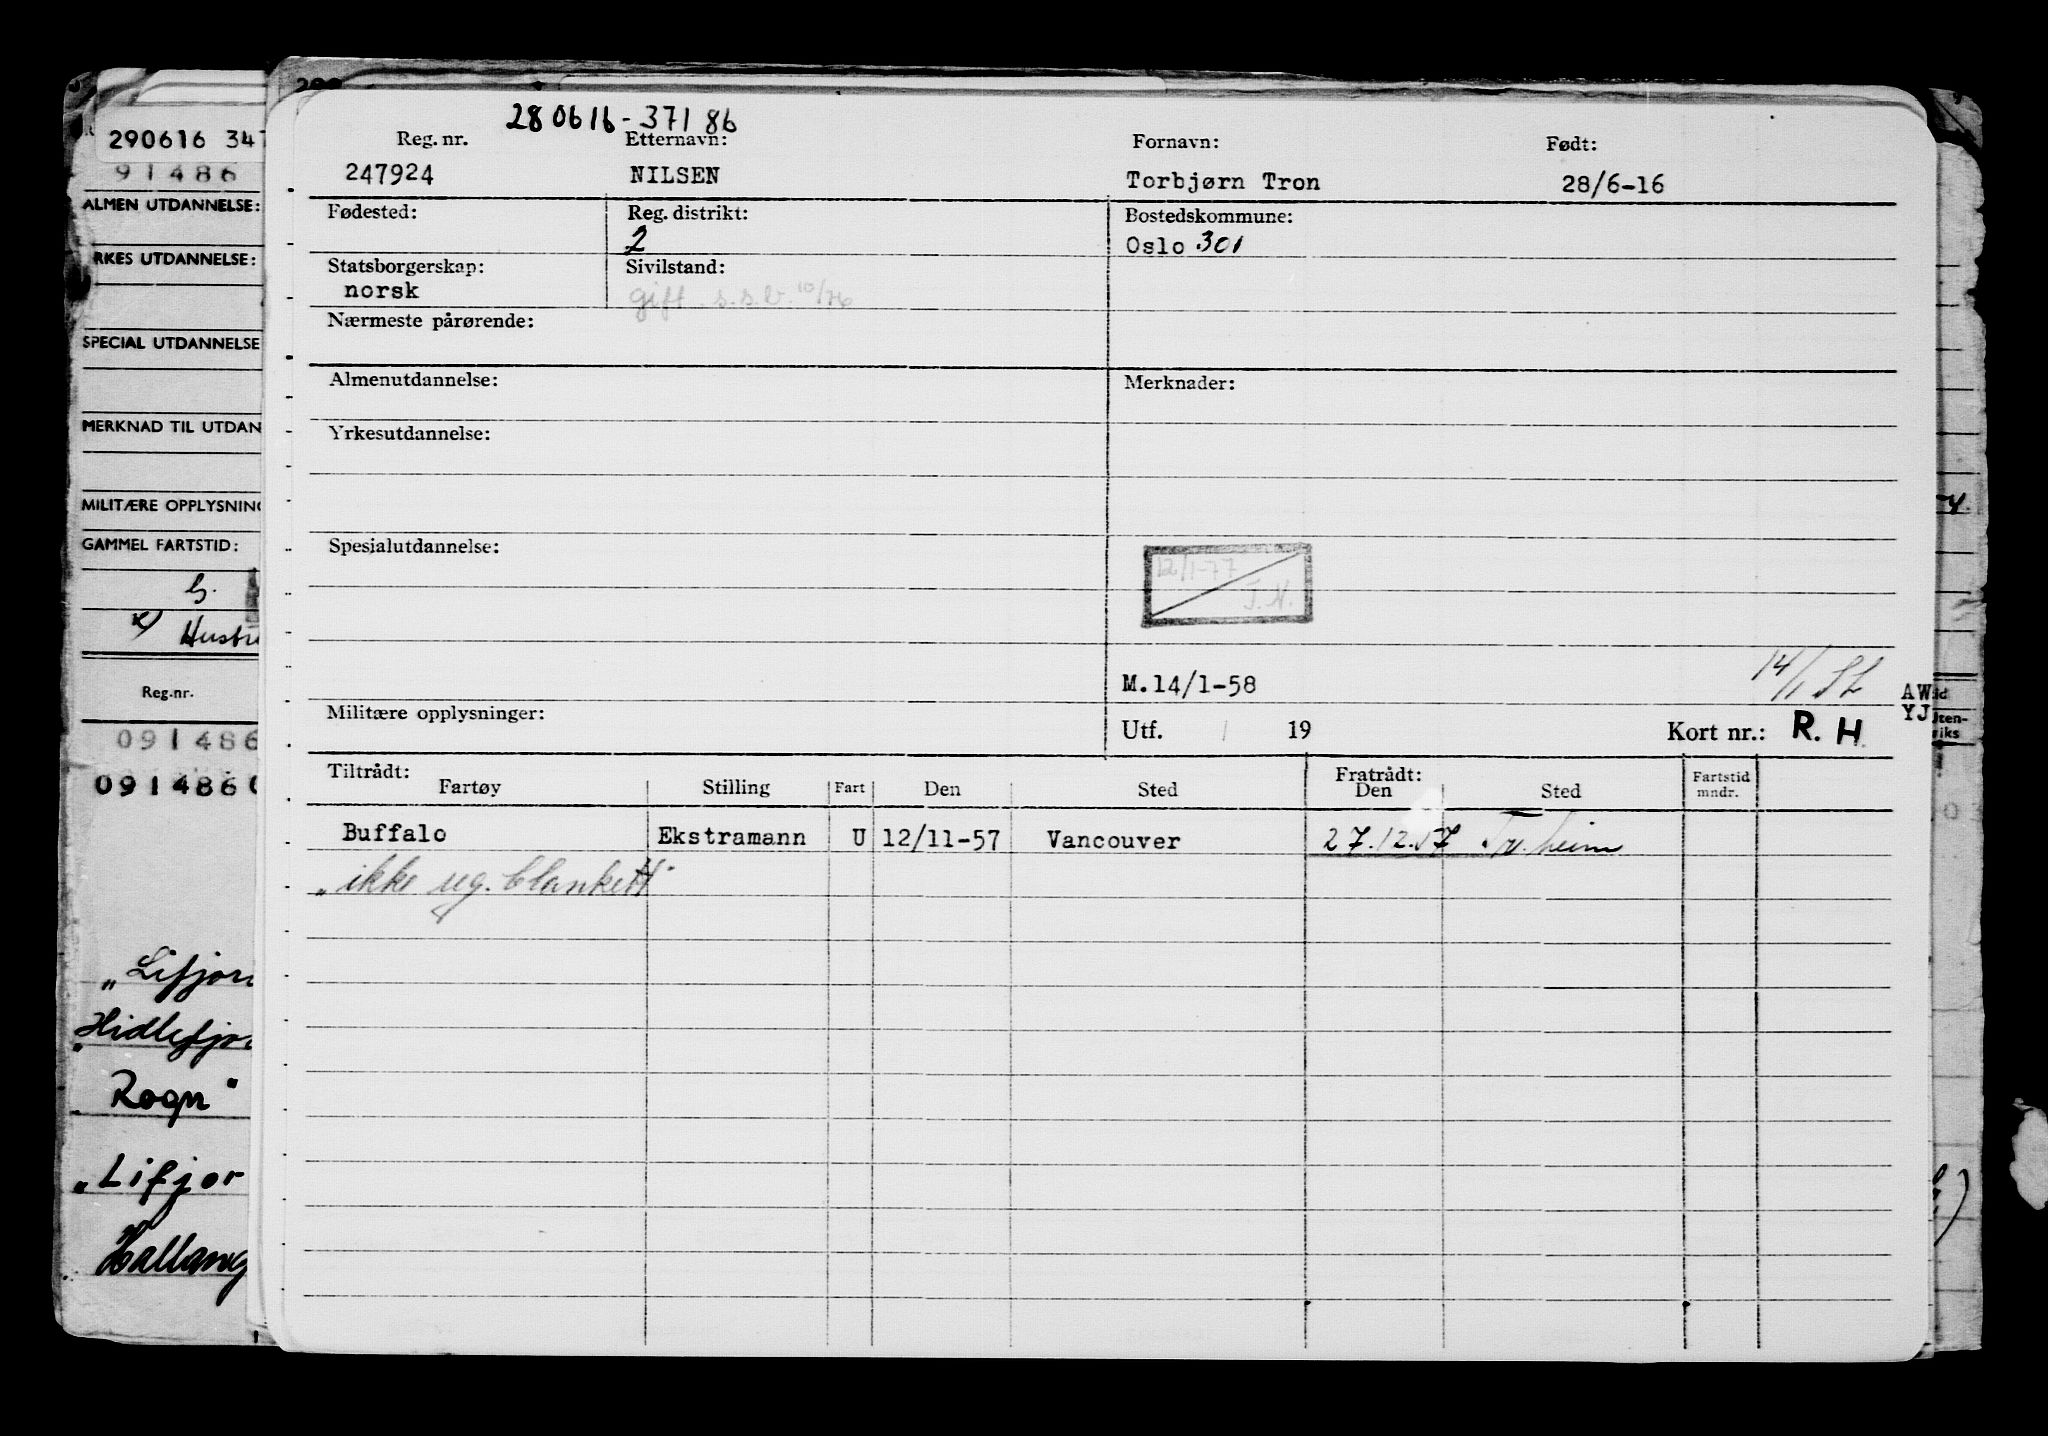 280616-37186
Reg. nr. Etternavn: Fornavn: Født:
247924 NILSEN Torbjørn Tron 28/6-16
Fødested: Reg. distrikt: Bostedskommune:
2 Oslo 301
Statsborgerskap: Sivilstand:
norsk gift s.s.v. 10/76
Nærmeste pårørende:
Almenutdannelse: Merknader:
Yrkesutdannelse:
Spesialutdannelse:
12/1-77
J.N.
M.14/1-58 14/1
Militære opplysninger: Utf. / 19 Kort nr.: R. H.
Tiltrådt: Fratrådt:
Fartøy Stilling Fart Den Sted Den Sted Fartstid mndr.
Buffalo Ekstramann U 12/11-57 Vancouver 27.12.57 Tr.heim
"ikke reg. blankett"
290616 347
91486
ALMEN UTDANNELSE:
RKES UTDANNELSE:
SPECIAL UTDANNELSE
MERKNAD TIL UTDAN
MILITÆRE OPPLYSNING
GAMMEL FARTSTID:
Reg.nr.
091486
091486
"Lifjor
"Hidlefjor
Rogn"
"Lifjor
AW
YJ
iks